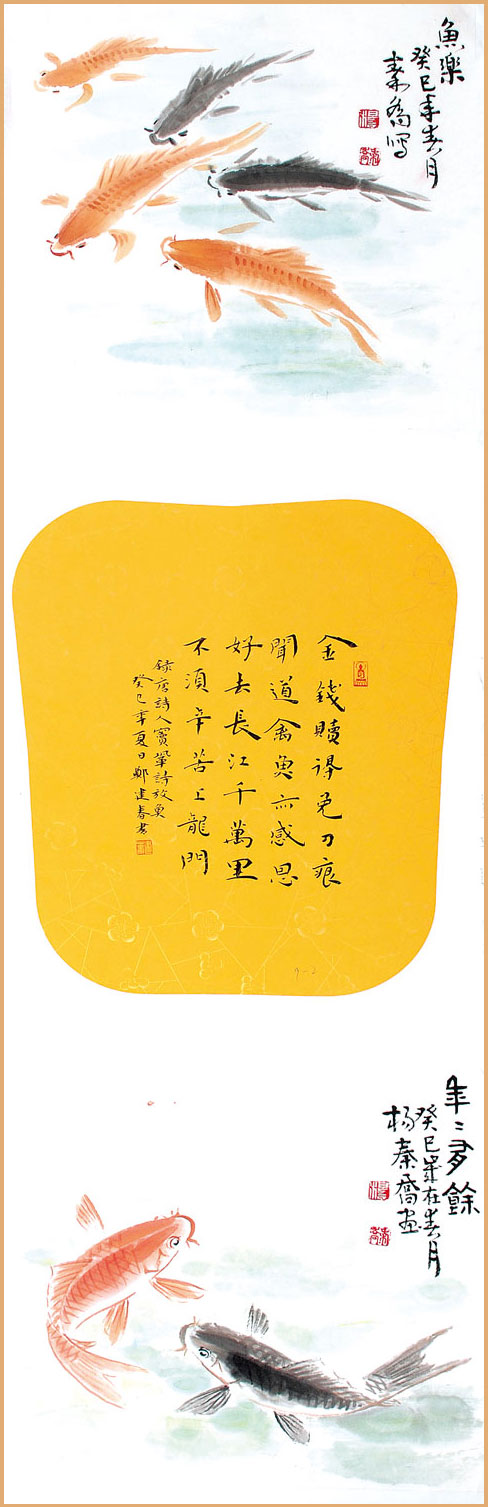 魚樂
癸巳年春月
秦喬寫
金錢贖得免刀痕
聞道禽魚亦感恩
好去長江千萬里
不須辛苦上龍門
錄唐詩人竇鞏詩放魚
癸巳季夏日鄭建春書
年〻多餘
癸巳歲在春月
楊秦喬画